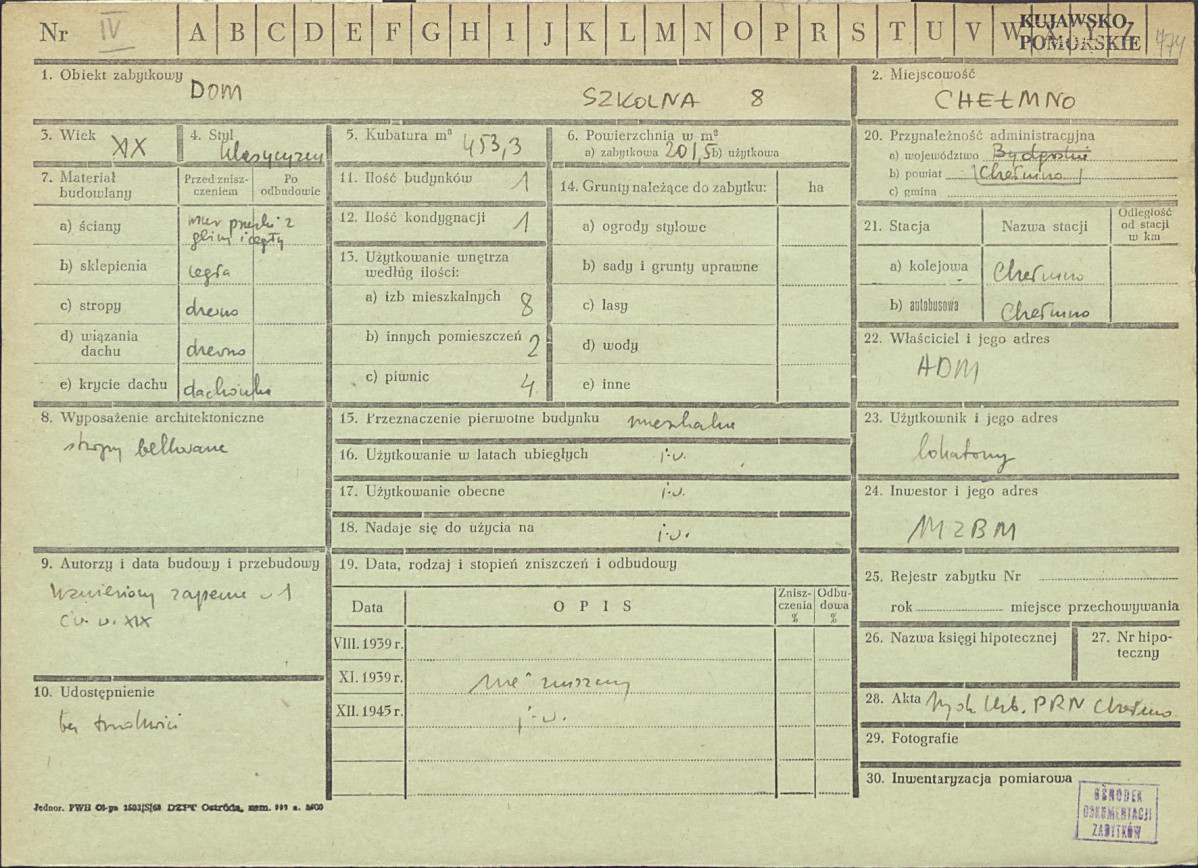 Nr IV A B C D E F G H I J K L M N O P R S T U V W X Y Z
KUJAWSKO-
POMORSKIE
1. Obiekt zabytkowy DOM SZKOLNA 8
2. Miejscowość
CHEŁMNO
3. Wiek XIX
4. Styl klasycyzm
5. Kubatura m³ 453,3
6. Powierzchnia w m²
a) zabytkowa 201,5 b) użytkowa
7. Materiał
budowlany
Przed znisz-
czeniem
Po
odbudowie
a) ściany
gliny i cegły
b) sklepienia cegła
c) stropy drewno
d) wiązania
dachu drewno
e) krycie dachu dachówka
8. Wyposażenie architektoniczne
stropy belkowane
9. Autorzy i data budowy i przebudowy
wzniesiony zapewne w 1
ćw. w. XIX
10. Udostępnienie
bez trudności
11. Ilość budynków 1
12. Ilość kondygnacji 1
13. Użytkowanie wnętrza
według ilości:
a) izb mieszkalnych 8
b) innych pomieszczeń 2
c) piwnic 4
14. Grunty należące do zabytku: ha
a) ogrody stylowe
b) sady i grunty uprawne
c) lasy
d) wody
e) inne
15. Przeznaczenie pierwotne budynku mieszkalne
16. Użytkowanie w latach ubiegłych j.w.
17. Użytkowanie obecne j.w.
18. Nadaje się do użycia na j.w.
19. Data, rodzaj i stopień zniszczeń i odbudowy
Data OPIS
Znisz-
czenia
%
Odbu-
dowa
%
VIII. 1939 r.
XI. 1939 r. nie zniszczony
XII. 1945 r. j.w.
20. Przynależność administracyjna
a) województwo Bydgoskie
b) powiat Chełmno
c) gmina
21. Stacja Nazwa stacji
Odległość
od stacji
w km
a) kolejowa Chełmno
b) autobusowa Chełmno
22. Właściciel i jego adres
ADM
23. Użytkownik i jego adres
lokatorzy
24. Inwestor i jego adres
MZBM
25. Rejestr zabytku Nr
rok miejsce przechowywania
26. Nazwa księgi hipotecznej
27. Nr hipo-
teczny
28. Akta PRN Chełmno
29. Fotografie
30. Inwentaryzacja pomiarowa
OŚRODEK
DOKUMENTACJI
ZABYTKÓW